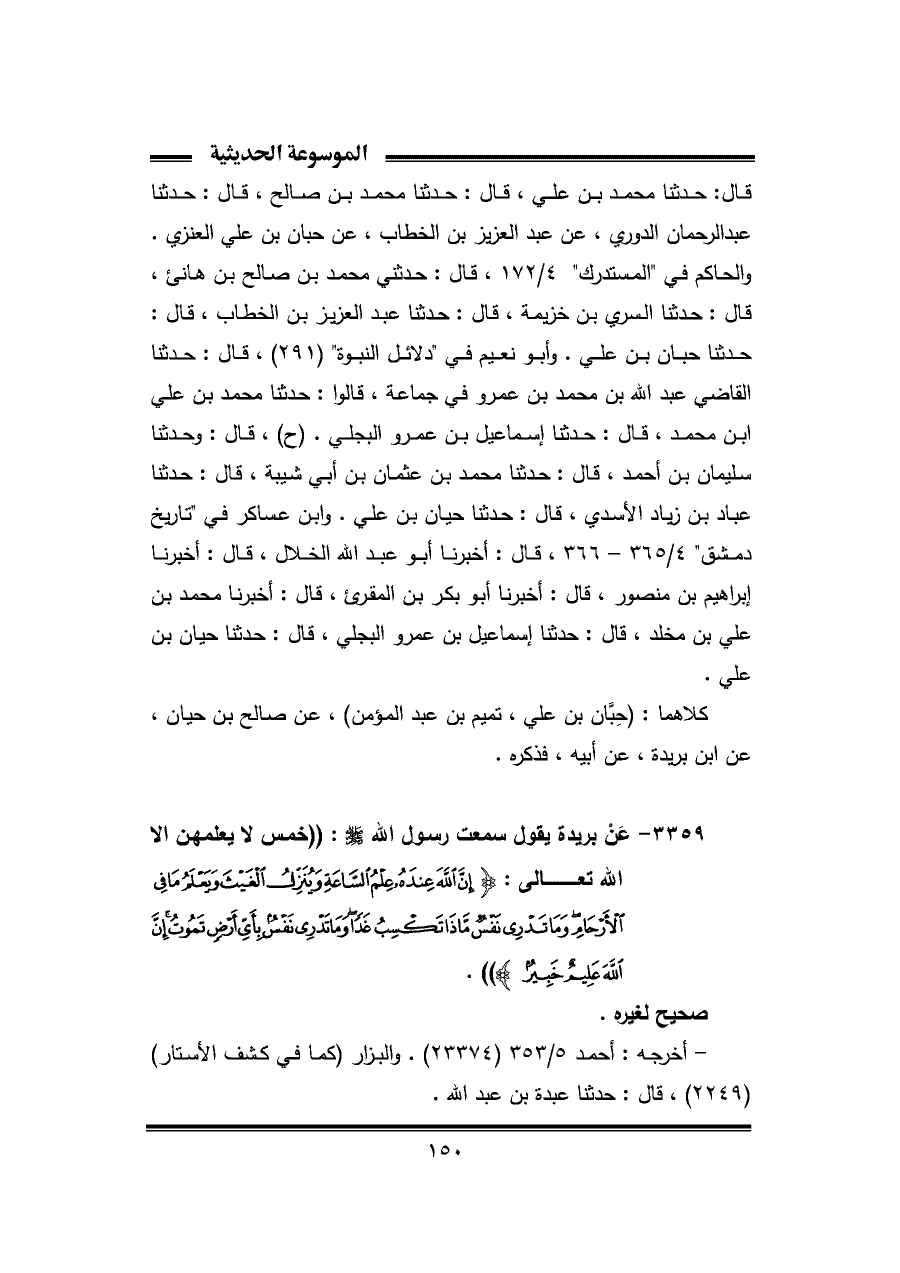 الموسوعة الحديثية
قال: حدثنا محمد بن علي ، قال : حدثنا محمد بن صالح ، قال : حدثنا
عبدالرحمان الدوري ، عن عبد العزيز بن الخطاب ، عن حبان بن علي العنزي .
والحاكم في "المستدرك" ١٧٢/٤ ، قال : حدثني محمد بن صالح بن هانئ ،
قال : حدثنا السري بن خزيمة ، قال : حدثنا عبد العزيز بن الخطاب ، قال :
حدثنا حبان بن علي . وأبو نعيم في "دلائل النبوة" (٢٩١) ، قال : حدثنا
القاضي عبد الله بن محمد بن عمرو في جماعة ، قالوا : حدثنا محمد بن علي
ابن محمد ، قال : حدثنا إسماعيل بن عمرو البجلي . (ح) ، قال : وحدثنا
سليمان بن أحمد ، قال : حدثنا محمد بن عثمان بن أبي شيبة ، قال : حدثنا
عباد بن زياد الأسدي ، قال : حدثنا حيان بن علي . وابن عساكر في "تاريخ
دمشق" ٣٦٥/٤ – ٣٦٦ ، قال : أخبرنا أبو عبد الله الخلال ، قال : أخبرنا
إبراهيم بن منصور ، قال : أخبرنا أبو بكر بن المقرئ ، قال : أخبرنا محمد بن
علي بن مخلد ، قال : حدثنا إسماعيل بن عمرو البجلي ، قال : حدثنا حيان بن
علي .
كلاهما : (حِبَّان بن علي ، تميم بن عبد المؤمن) ، عن صالح بن حيان ،
عن ابن بريدة ، عن أبيه ، فذكره .
٣٣٥٩- عَنْ بريدة يقول سمعت رسول الله ﷺ : ((خمس لا يعلمهن الا
الله تعـــــالى : ﴿ إِنَّ اللَّهَ عِندَهُ عِلْمُ السَّاعَةِ وَيُنَزِّلُ الْغَيْثَ وَيَعْلَمُ مَا فِي
الْأَرْحَامِ ۖ وَمَا تَدْرِي نَفْسٌ مَّاذَا تَكْسِبُ غَدًا ۖ وَمَا تَدْرِي نَفْسٌ بِأَيِّ أَرْضٍ تَمُوتُ ۚ إِنَّ
اللَّهَ عَلِيمٌ خَبِيرٌ ﴾)) .
صحيح لغيره .
– أخرجه : أحمد ٣٥٣/٥ (٢٣٣٧٤) . والبزار (كما في كشف الأستار)
(٢٢٤٩) ، قال : حدثنا عبدة بن عبد الله .
١٥٠